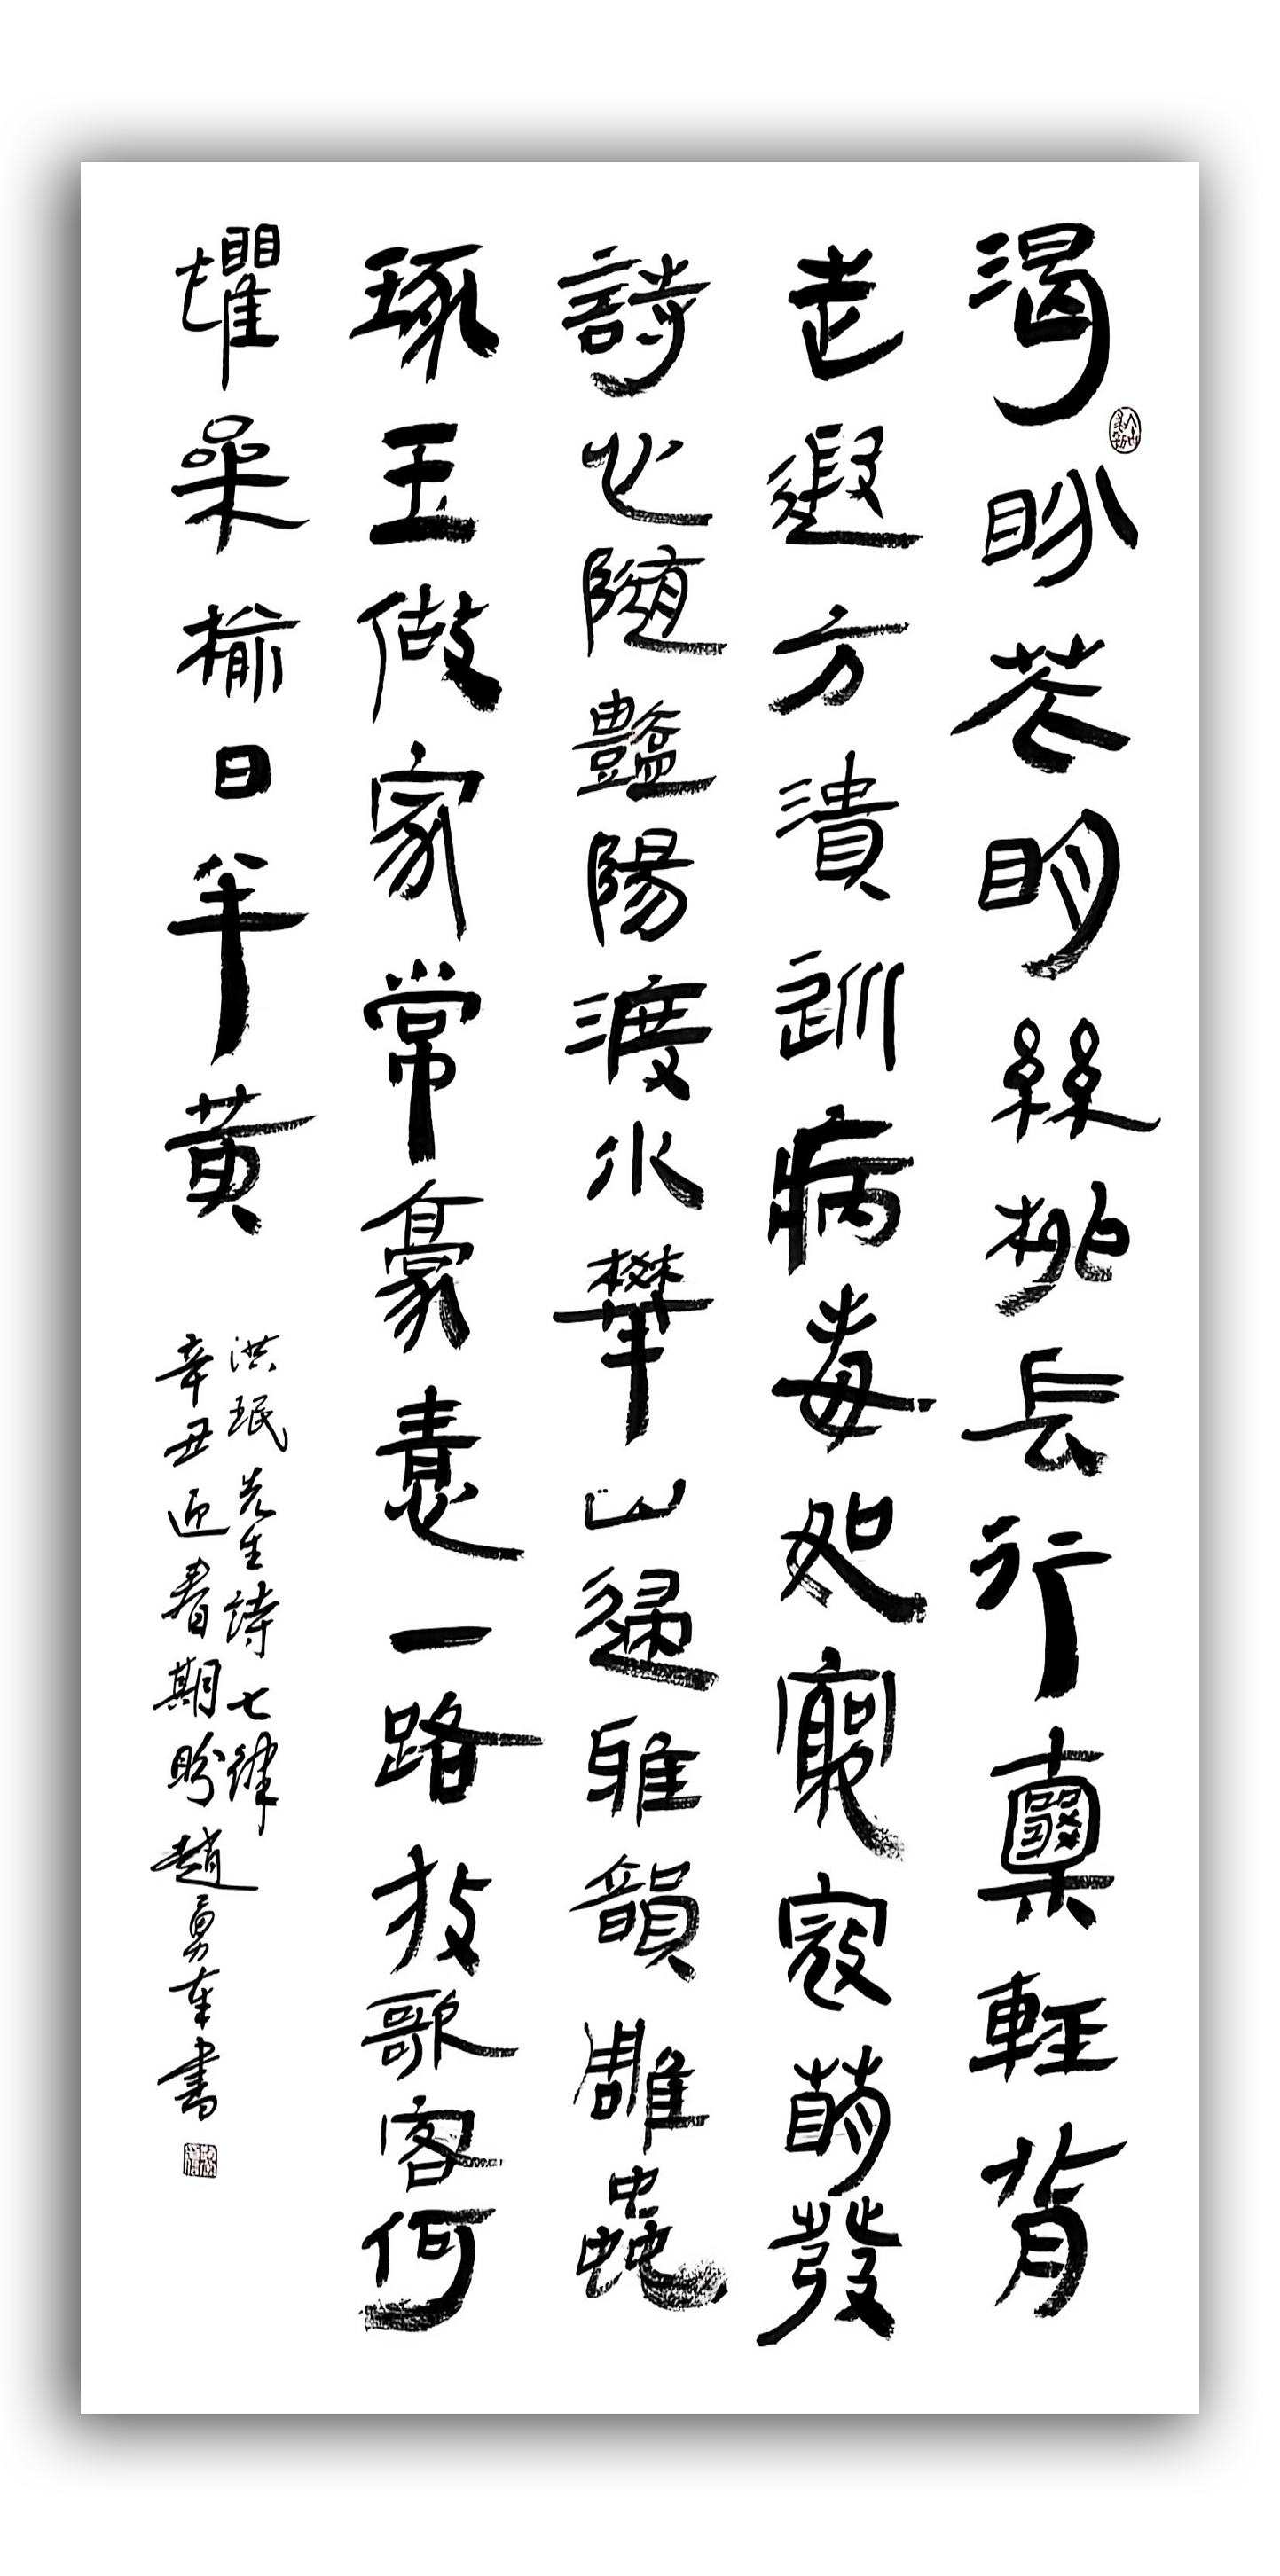 渴盼花明絲柳長行囊輕背
走遐方潰病毒如窮寇萌發
詩心隨豔陽渡水攀山歸雅韻雕蟲
琢玉做家常豪情一路放歌客何
懼桑榆日半黄
洪珉先生詩七律
辛丑迎春期盼趙勇書